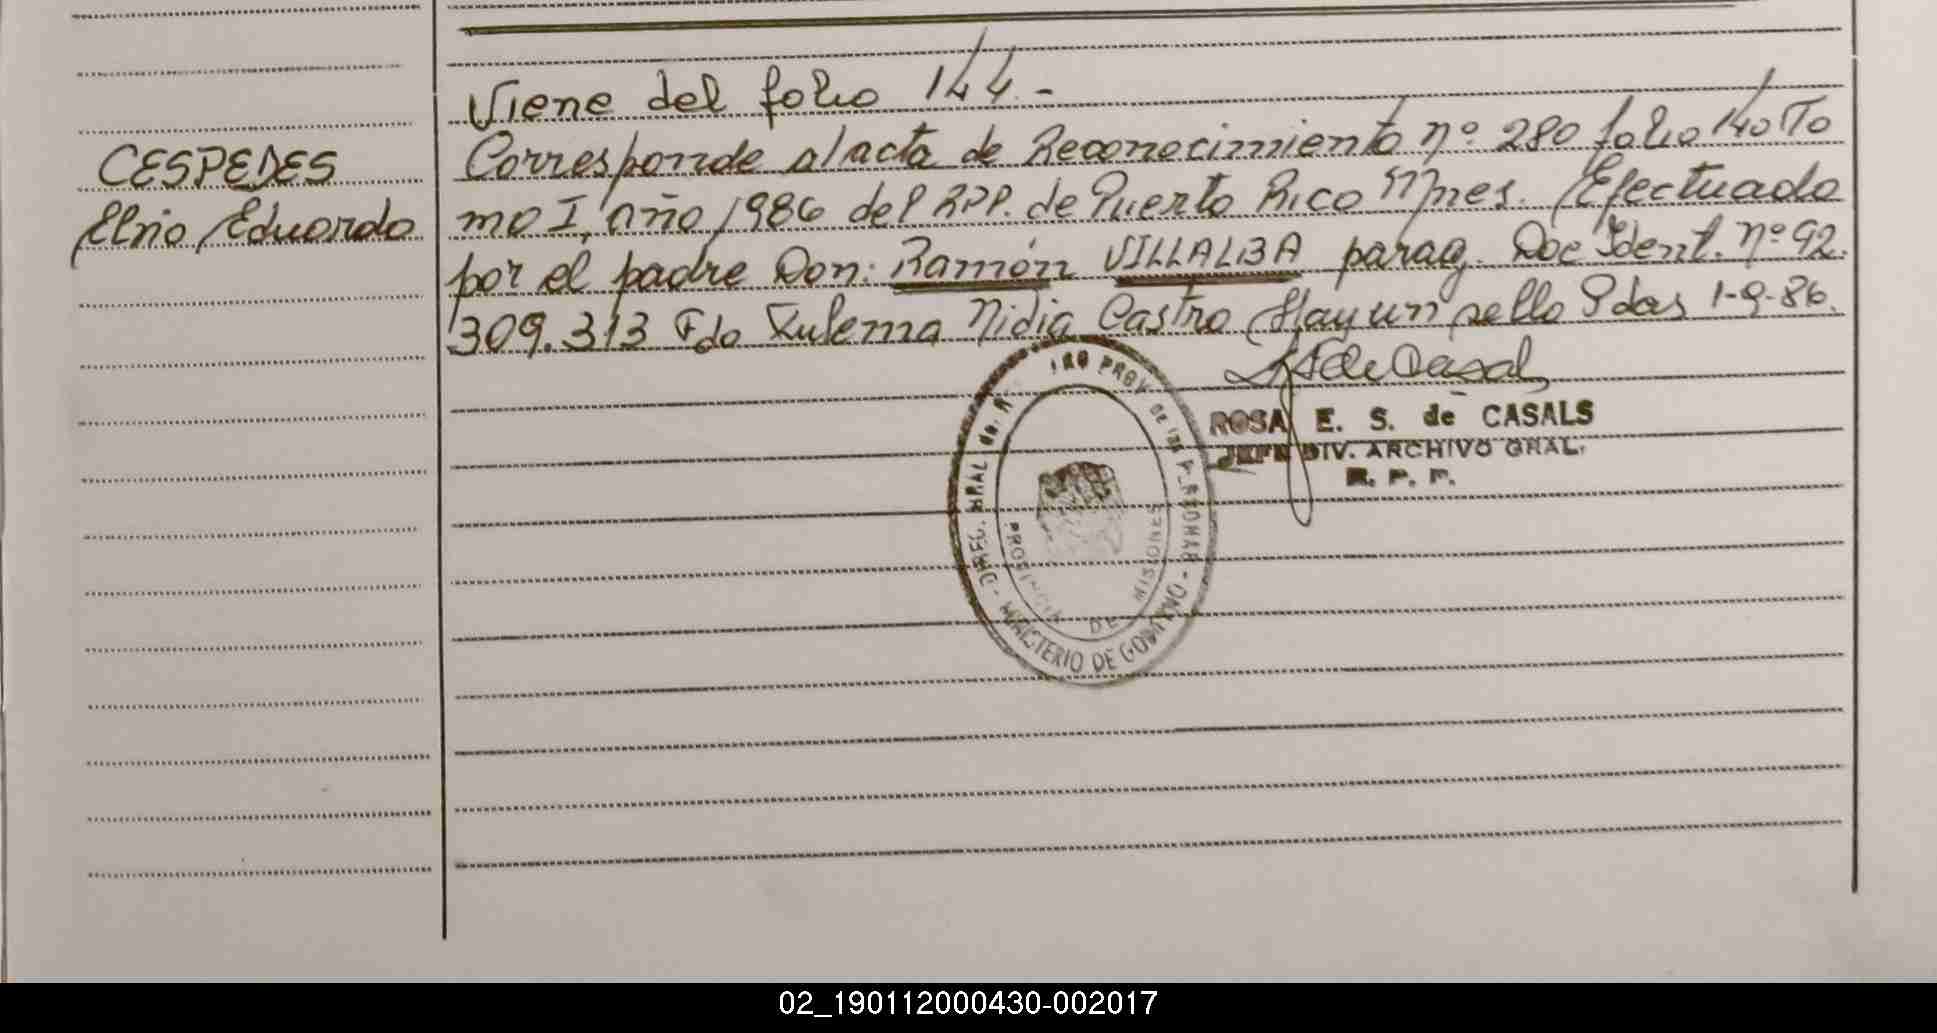 Viene del folio 144.-
CESPEDES
Elvio Eduardo
Corresponde al acta de Reconocimiento nº 280 folio 140 To
mo I, año 1986 del RPP. de Puerto Rico Mnes. Efectuado
por el padre Don: Ramón VILLALBA parag. Doc Ident. nº 92.
309.313 Fdo Zulema Nidia Castro Hay un sello Pdas 1-9-86.
ROSA E. S. de CASALS
JEFE DIV. ARCHIVO GRAL.
R. P. P.
PROV. DE LAS PERSONAS - MINISTERIO DE GOBIERNO -
PROVINCIA DE MISIONES
02_190112000430-002017